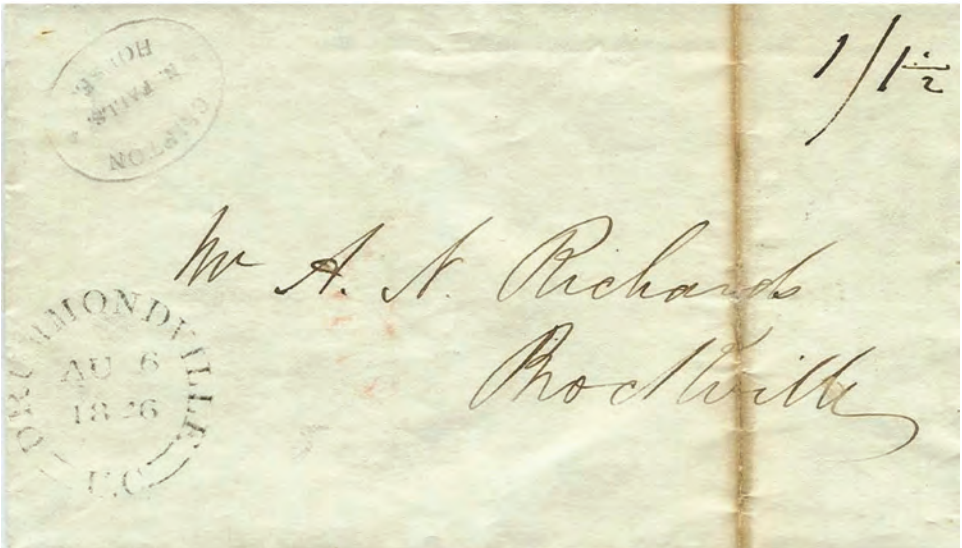 CLIFTON
N. FALLS
HOUSE
1/1½
Mr A. N. Richards
Brockville
DRUMMONDVILLE
AU 6
U.C.